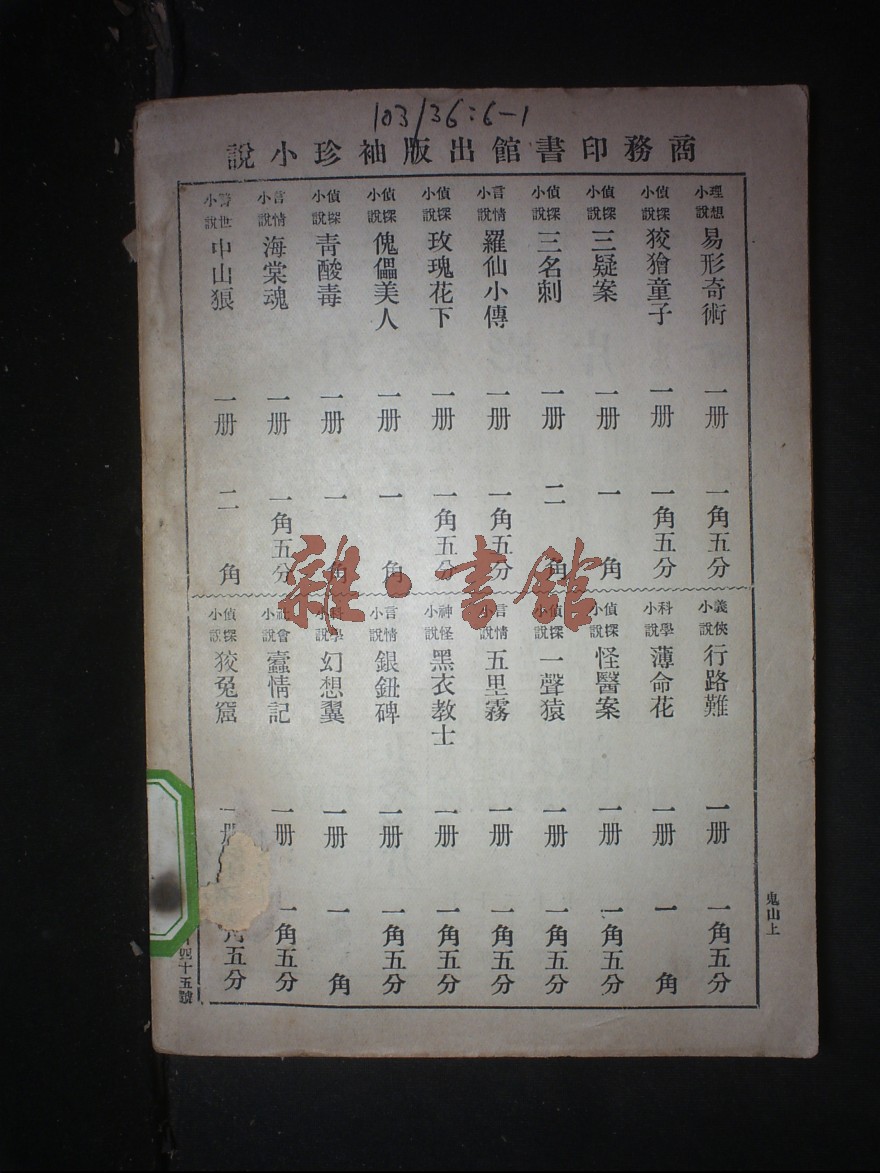 103/36:6-1
商務印書館出版袖珍小說
理想小說 易形奇術 一册 一角五分
偵探小說 狡獪童子 一册 一角五分
偵探小說 三疑案 一册 一角
偵探小說 三名刺 一册 二角
言情小說 羅仙小傳 一册 一角五分
偵探小說 玫瑰花下 一册 一角五分
偵探小說 傀儡美人 一册 一角
偵探小說 靑酸毒 一册 一角
言情小說 海棠魂 一册 一角五分
警世小說 中山狼 一册 二角
義俠小說 行路難 一册 一角五分
科學小說 薄命花 一册 一角
偵探小說 怪醫案 一册 一角五分
偵探小說 一聲猿 一册 一角五分
言情小說 五里霧 一册 一角五分
神怪小說 黑衣教士 一册 一角五分
言情小說 銀鈕碑 一册 一角五分
科學小說 幻想翼 一册 一角
社會小說 蠹情記 一册 一角五分
偵探小說 狡兔窟 一册 角五分
鬼山上
四十五號
雜·書館